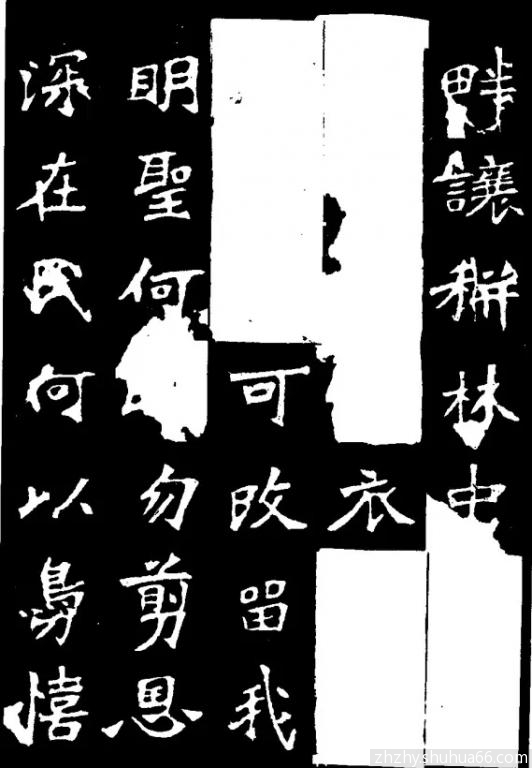 畔讓耕林中
衣
可改留我
明聖何勿剪思
深在民何以憘
zhzhyshuhua66.com